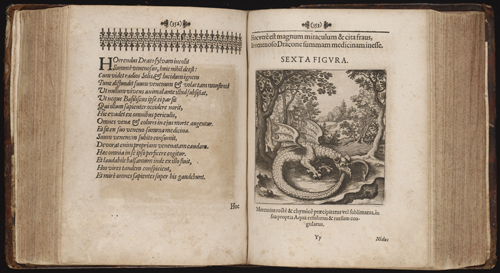 (352)
HOrrendus Draco sylvam incolit
Summè venenosus, huic nihil deest:
Cum videt radios Solis & lucidum ignem
Tunc diffundit suum venenum & volat tam
Ut nullum vivens animal ante illud subsistat,
Ut neque Basiliscus ipse ei par sit
Qui illum sapienter occidere norit,
Hic evadet ex omnibus periculis,
Omnes venæ & colores in ejus morte augentur
Et fit ex suo veneno summa medicina.
Suum venenum subito consumit,
Devorat enim propriam venenatam caudam.
Hæc omnia in se ipso perficere cogitur.
Et laudabile balsamum inde ex illo fluit,
vires tandem conspicient,
Et mirè omnes sapientes super his gaudebunt.
Hoc
(353)
Hoc verè est magnum miraculum & cita fraus,
In venenoso Dracone summam medicinam inesse.
SEXTA FIGURA.
Mercurius rectè & chymicè præcipitatus vel sublimatus, in
sua propria Aqua resolutus & rursum coa-
gulatus.
Yy
Nidus